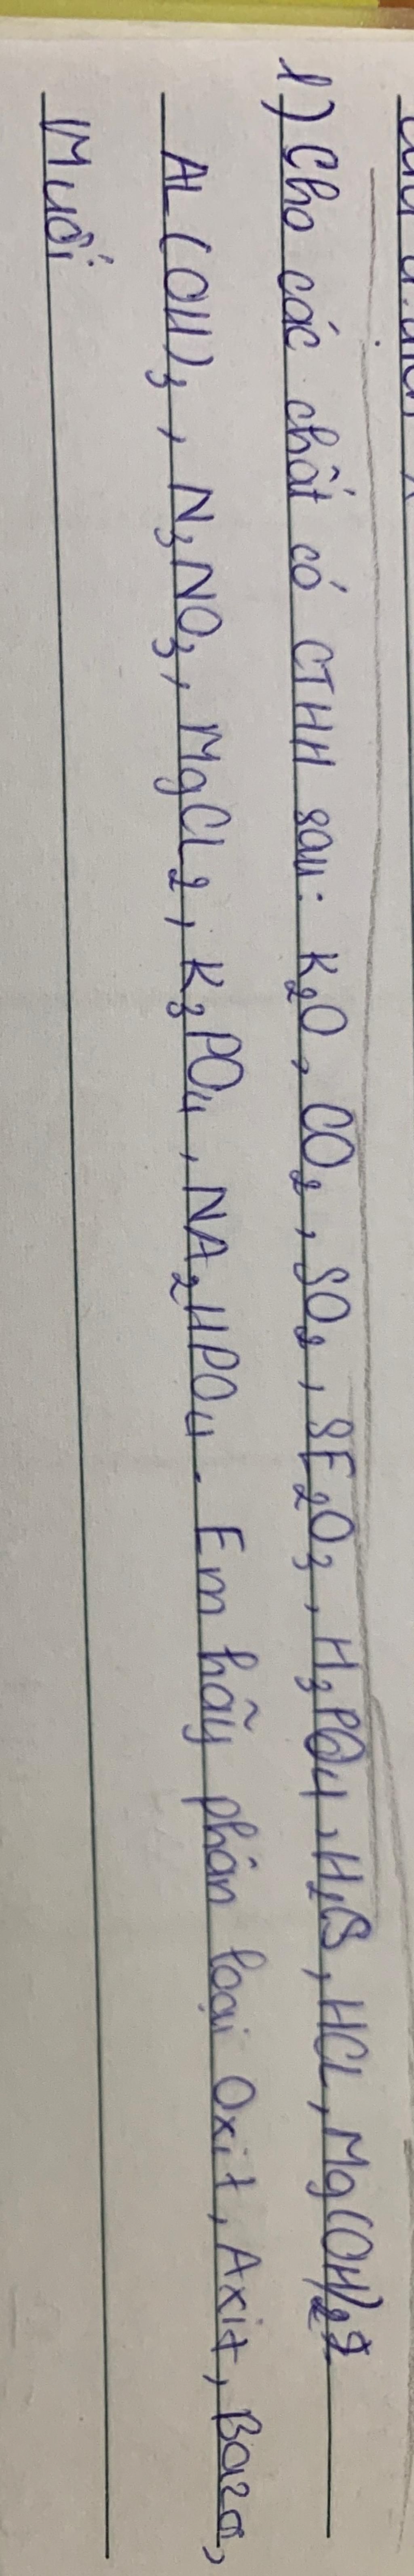 1) Cho các chất có CTHH sau: K₂O, CO₂, SO₂, SE₂O₃, H₃PO4, H₂S, HCL, Mg(OH)₂
AL(OH)₃, N₃NO₃, MgCL₂, K₃PO₄, NA₂HPO4. Em hãy phân loại Oxit, Axit, Bazơ,
Muối